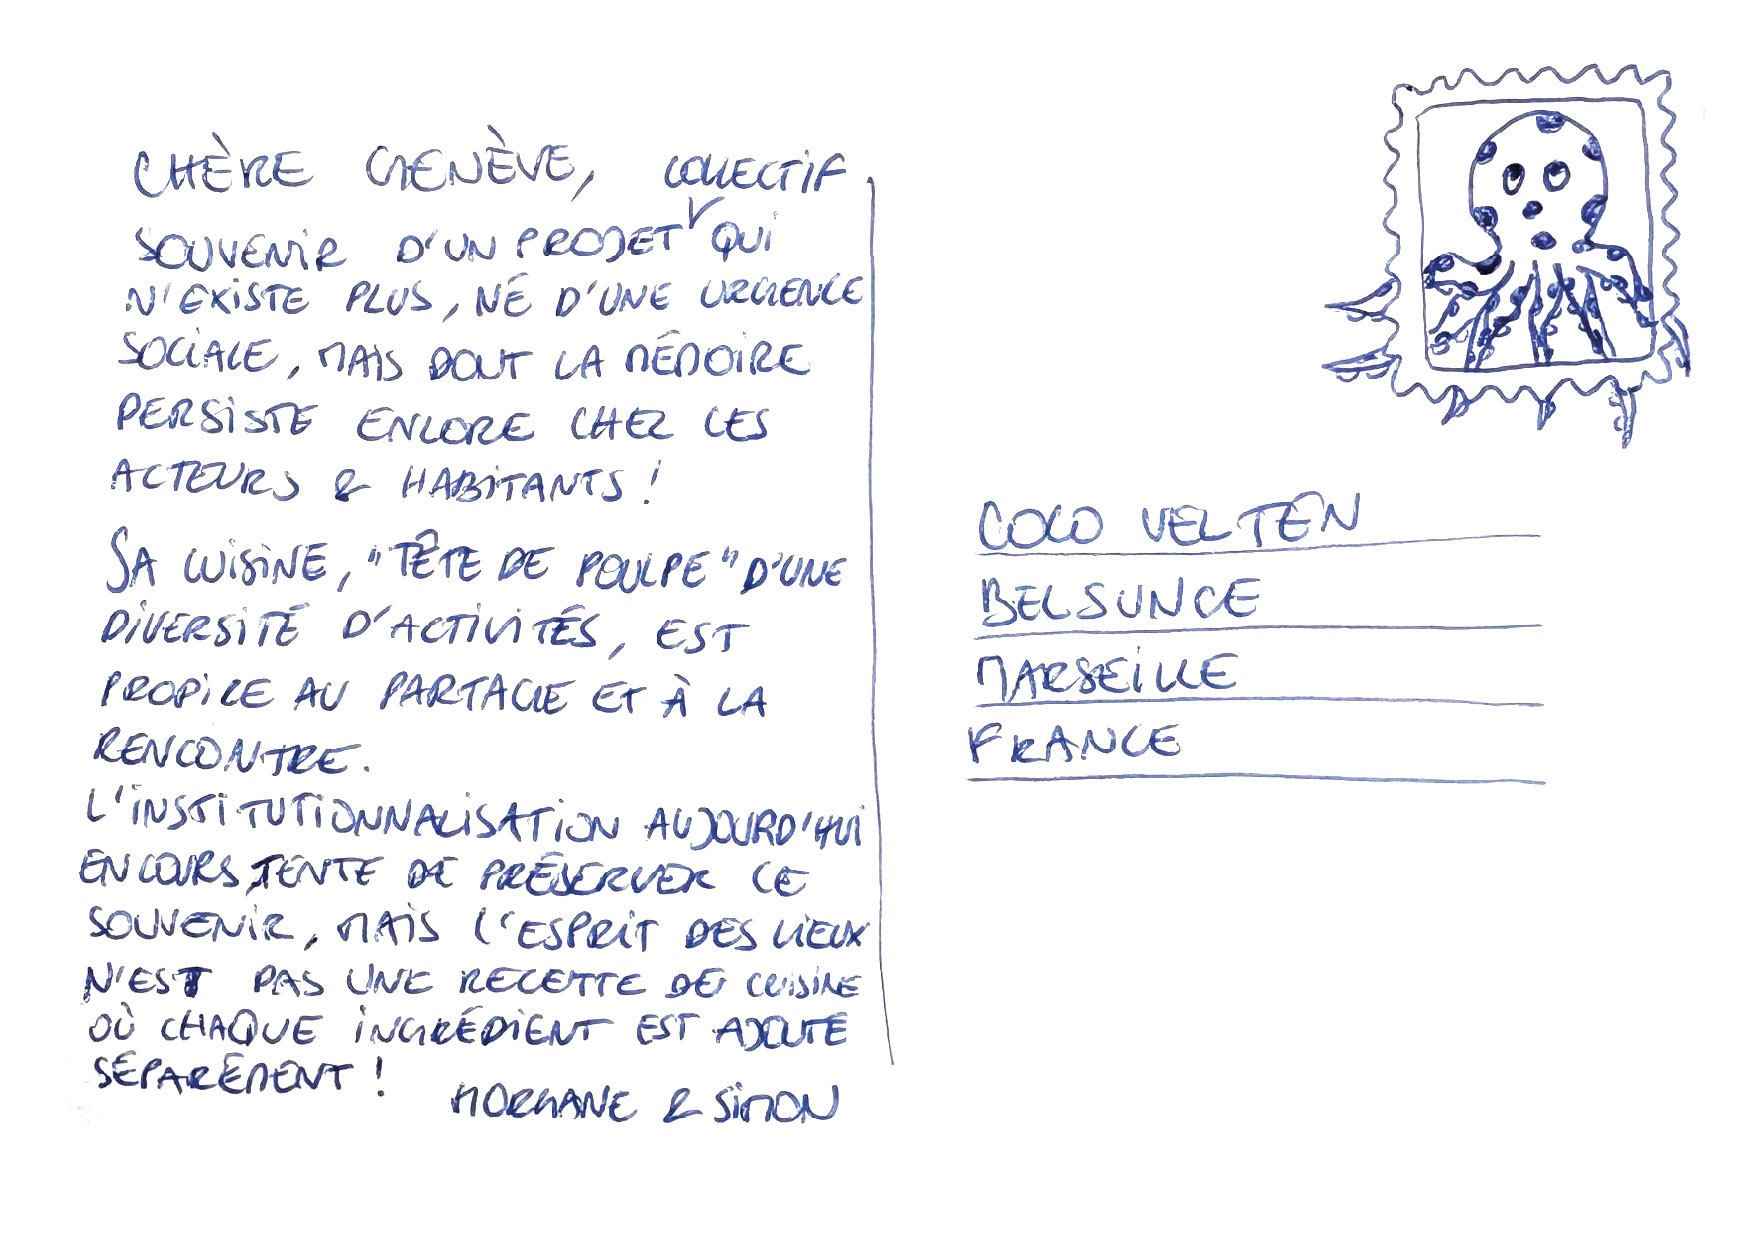 CHÈRE GENÈVE,
SOUVENIR D'UN PROJET COLLECTIF QUI
N'EXISTE PLUS, NÉ D'UNE URGENCE
SOCIALE, MAIS DONT LA MÉMOIRE
PERSISTE ENCORE CHEZ LES
ACTEURS & HABITANTS !
SA CUISINE, "TÊTE DE POULPE" D'UNE
DIVERSITÉ D'ACTIVITÉS, EST
PROPICE AU PARTAGE ET À LA
RENCONTRE.
L'INSTITUTIONNALISATION AUJOURD'HUI
EN COURS, TENTE DE PRÉSERVER CE
SOUVENIR, MAIS L'ESPRIT DES LIEUX
N'EST PAS UNE RECETTE DE CUISINE
OÙ CHAQUE INGRÉDIENT EST AJOUTÉ
SÉPARÉMENT !
MORGANE & SIMON
COCO VELTEN
BELSUNCE
MARSEILLE
FRANCE